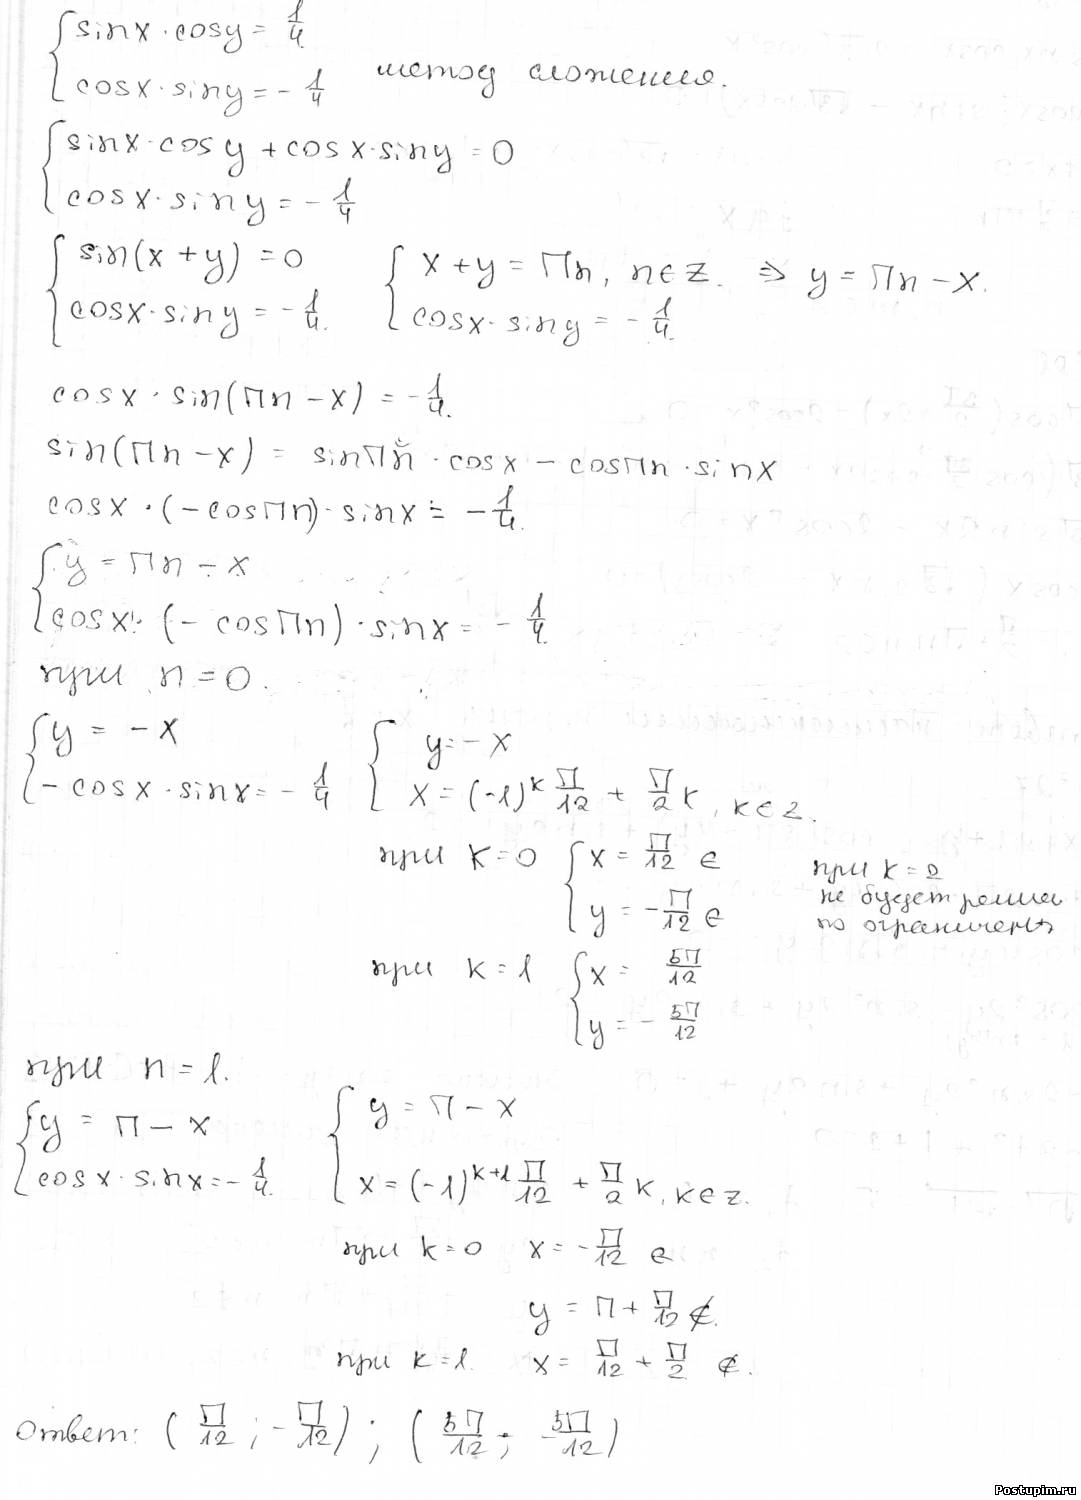 { sinx · cosy = 1/4
{ cosx · siny = - 1/4 метод сложения.
{ sinx · cosy + cosx · siny = 0
{ cosx · siny = - 1/4
{ sin(x + y) = 0 { x + y = Πn, n∈Z. ⇒ y = Πn - x.
{ cosx · siny = - 1/4. { cosx · siny = - 1/4.
cosx · sin(Πn - x) = - 1/4.
sin(Πn - x) = sinΠn · cosx - cosΠn · sinx
cosx · (-cosΠn) · sinx = - 1/4.
{ y = Πn - x
{ cosx · (- cosΠn) · sinx = - 1/4.
при n = 0.
{ y = - x { y = - x
{ - cosx · sinx = - 1/4 { x = (-1)^k Π/12 + Π/2 k, k∈z.
при k=0 { x = Π/12 ∈
{ y = - Π/12 ∈
при k = 2
не будет реше
по ограничен
при k = 1 { x = 5Π/12
{ y = - 5Π/12
при n = 1.
{ y = Π - x { y = Π - x
{ cosx · sinx = - 1/4. { x = (-1)^k+1 Π/12 + Π/2 k, k∈z.
при k=0 x = - Π/12 ∈
y = Π + Π/12 ∉.
при k=1. x = Π/12 + Π/2 ∉.
Ответ: ( Π/12 ; - Π/12 ) ; ( 5Π/12 ; - 5Π/12 )
Postupim.ru